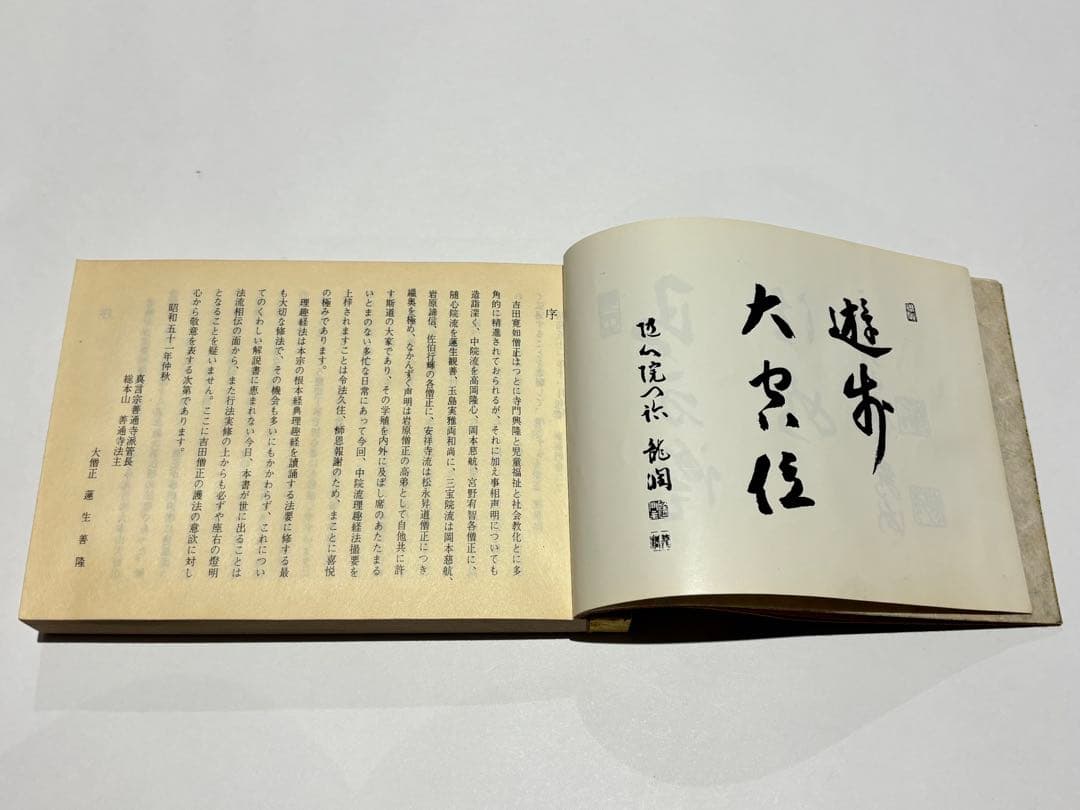 遊歩
大空位
随心院門跡 龍潤
序
吉田寛如僧正はつとに寺門興隆と児童福祉と社会教化とに多
角的に精進されておられるが、それに加え事相声明についても
造詣深く、中院流を高岡隆心、岡本慈航、宮野宥智各僧正に、
随心院流を蓮生観善、玉島実雅両和尚に、三宝院流は岡本慈航、
岩原諦信、佐伯行暉の各僧正に、安祥寺流は松永昇道僧正につき
繊奥を極め、なかんずく声明は岩原僧正の高弟として自他共に許
す斯道の大家であり、その学殖を内外に及ぼし席のあたたまる
いとまのない多忙な日常にあって今回、中院流理趣経法撮要を
上梓されますことは令法久住、師恩報謝のため、まことに喜悦
の極みであります。
理趣経法は本宗の根本経典理趣経を讀誦する法要に修する最
も大切な修法で、その機会も多いにもかかわらず、これについ
てのくわしい解説書に恵まれない今日、本書が世に出ることは
法流相伝の面から、また行法実修の上からも必ずや座右の燈明
となることを疑いません。ここに吉田僧正の護法の意欲に対し
心から敬意を表する次第であります。
昭和五十一年仲秋
真言宗善通寺派管長
総本山 善通寺法主
大僧正 蓮生善隆